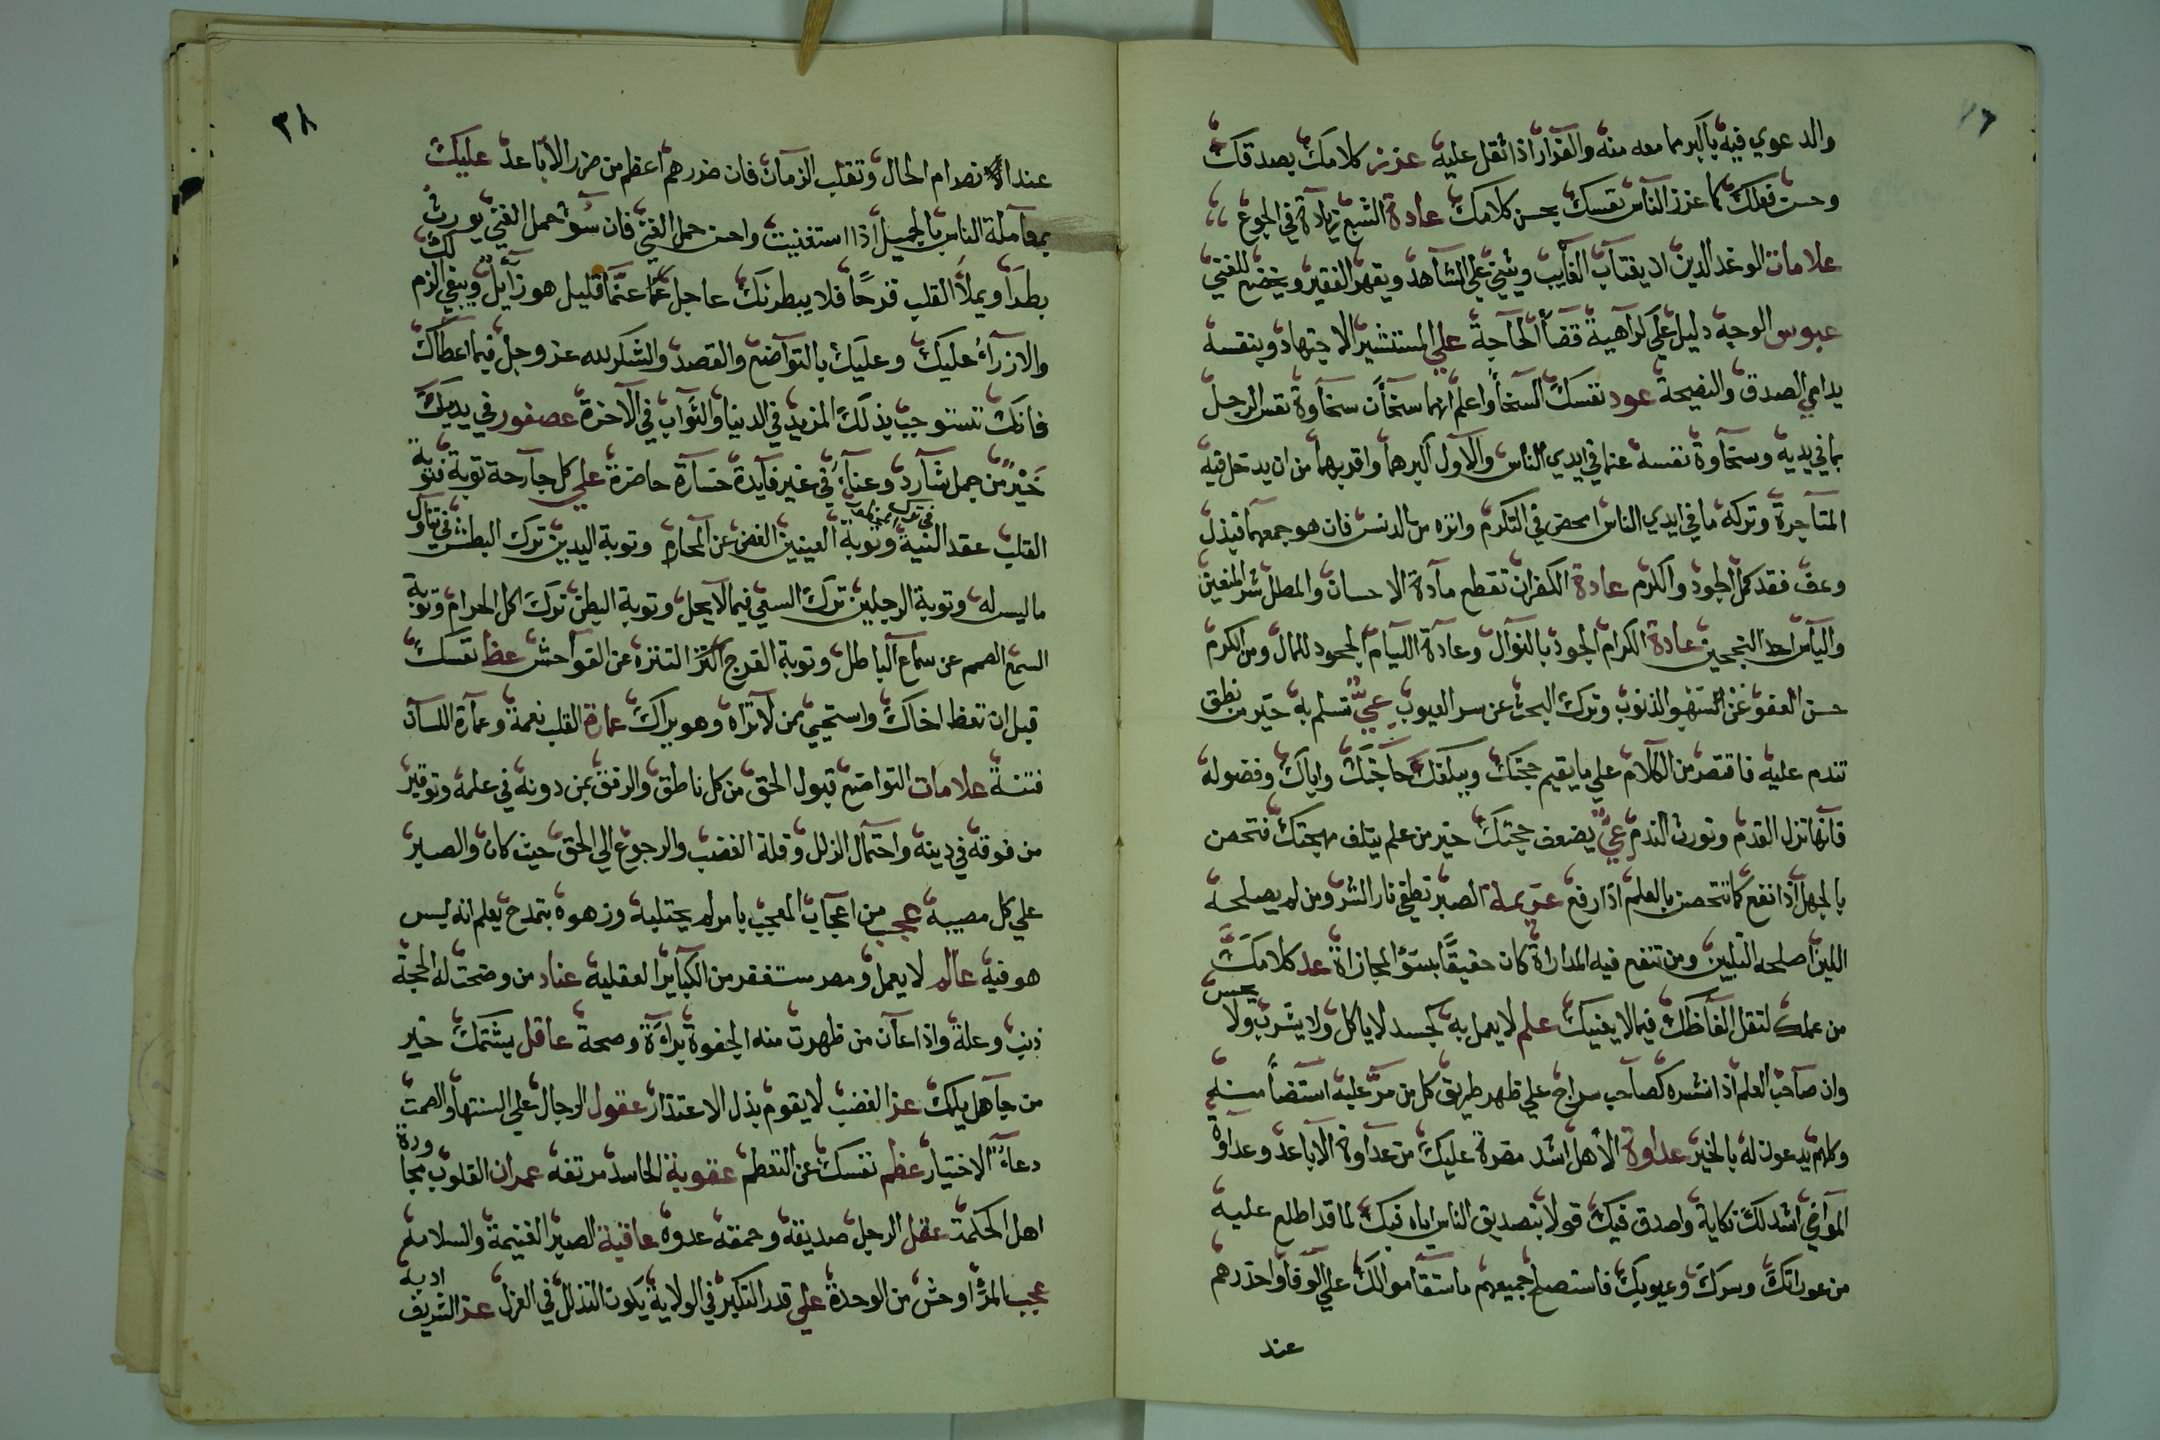 والدعوي فيه باكبر مما معه منه والفرار اذا ثقل عليه عزز كلامك بصدقك
وحسن فعلك كما عزز الناس نفسك بحسن كلامك عادة الشبع زيادة في الجوع
علامات الوغد الدين ان يغتاب الغايب ويثني علي الشاهد ويقهر الفقير ويخضع للغني
عبوس الوجه دليل علي كراهية قضا الحاجة علي المستشير الاجتهاد وبنفسه
يداعي الصدق والنصيحة عود نفسك السخا واعلم انهما سخآان سخاوة نفس الرجل
بما في يديه وسخاوة نفسه عما في ايدي الناس والاول اكبرهما واقربهما من ان يدخل فيه
المتاجرة وتركه ما في ايدي الناس امحض في التكرم وانزه من الدنس فان هو جمعهما فبذل
وعف فقد كمل الجود والكرم عادة الكفران تقطع مادة الاحسان والمطل شر المنعين
والياس احد النجحين عادة الكرام الجود بالنوال وعادة الليام الجحود للمال ومن الكرم
حسن العفو عن الذنوب وترك البحث عن سر العيوب عيٌّ تسلم به خير من نطق
تندم عليه فاقتصر من الكلام علي ما يقيم حجتك ويبلغك حاجتك واياك وفضوله
فانها تزل القدم وتورث الندم عيٌّ يضعف حجتك خير من علم يتلف مهجتك فتحصن
بالجهل اذا نفع كما تتحصن بالعلم اذا رفع عزيمة الصبر تطفي نار الشر ومن لم يصلحه
اللين اصلحه التليين ومن تنفع فيه المداراة كان حقيقًا بسؤ المجازاة عد كلامك
من عملك لتقل الفاظك فيما لا يعنيك علم لا يعمل به كجسد لا ياكل ولا يشرب ولا يحس
وان صاحب العلم اذا نشره كصاحب سراج علي ظهر طريق كل من مر عليه استضا منه
وكلهم يدعون له بالخير عداوة الاهل اشد مضرة عليك من عداوة الاباعد وعداوة
الموافي اشد لك نكاية واصدق فيك قولا بتصديق الناس اياه فيك لما قد اطلع عليه
من عوراتك وسرك وعيوبك فاستصلح جميعهم ما استقاموا لك علي الوفا واحذرهم
عند
٣٨
عند الانصرام الحال وتقلب الزمان فان ضررهم اعظم من ضرر الاباعد عليك
بمعاملة الناس بالجميل اذا استغنيت واحسن حمل الغني فان سؤ حمل الغني يورث لك
بطرا ويملا القلب فرحًا فلا يبطرنك عاجل غنا عما قليل هو زايل ويبقي الذم
والازراء عليك وعليك بالتواضع والقصد والشكر لله عز وجل فيما اعطاك
فانك تستوجب بذلك المزيد في الدنيا والثواب في الآخرة عصفور في يديك
خَيْر من جمل شارد وعنآء في غير فايدة خسارة حاضرة علي كل جارحة توبة فتوبة
القلب عقد النية وتوبة العينين الغض عن المحارم وتوبة اليدين ترك البطش في تناول
ما ليس له وتوبة الرجلين ترك السعي فيما لا يحل وتوبة البطن ترك اكل الحرام وتوبة
السمع الصمم عن سماع الباطل وتوبة الفرج التنزه عن الفواحش عظ نفسك
قبل ان تعظ اخاك واستحيي ممن لا تراه وهو يراك عمارة القلب نعمة وعمارة اللسان
فتنة علامات التواضع قبول الحق من كل ناطق والرفق بمن دونه في علمه وتوقير
من فوقه في دينه واحتمال الزلل وقلة الغضب والرجوع الي الحق حيث كان والصبر
علي كل مصيبة عجب من اعجاب المعجب بامر لم يجتلبه وزهوه بتمدح يعلم انه ليس
هو فيه عالم لا يعمل ومصر مستغفر من الكباير العقلية عناد من وضحت له الحجة
ذنب وعلة واذا عان من ظهرت منه الجفوة براة وصحة عاقل يشتمك خير
من جاهل يكلمك عز الغضب لا يقوم بذل الاعتذار عقول الرجال علي السنتها والصمت
دعآء الاختيار عظم نفسك عن التعظم عقوبة الحاسد من نفسه عمران القلوب بمجاورة
اهل الحكمة عقل الرجل صديقه وحمقه عدوه عاقبة الصبر الغنيمة والسلامة
عجب المرء اوحش من الوحدة علي قدر التكبر في الولاية يكون التذلل في العزل عز الشريف ادبه